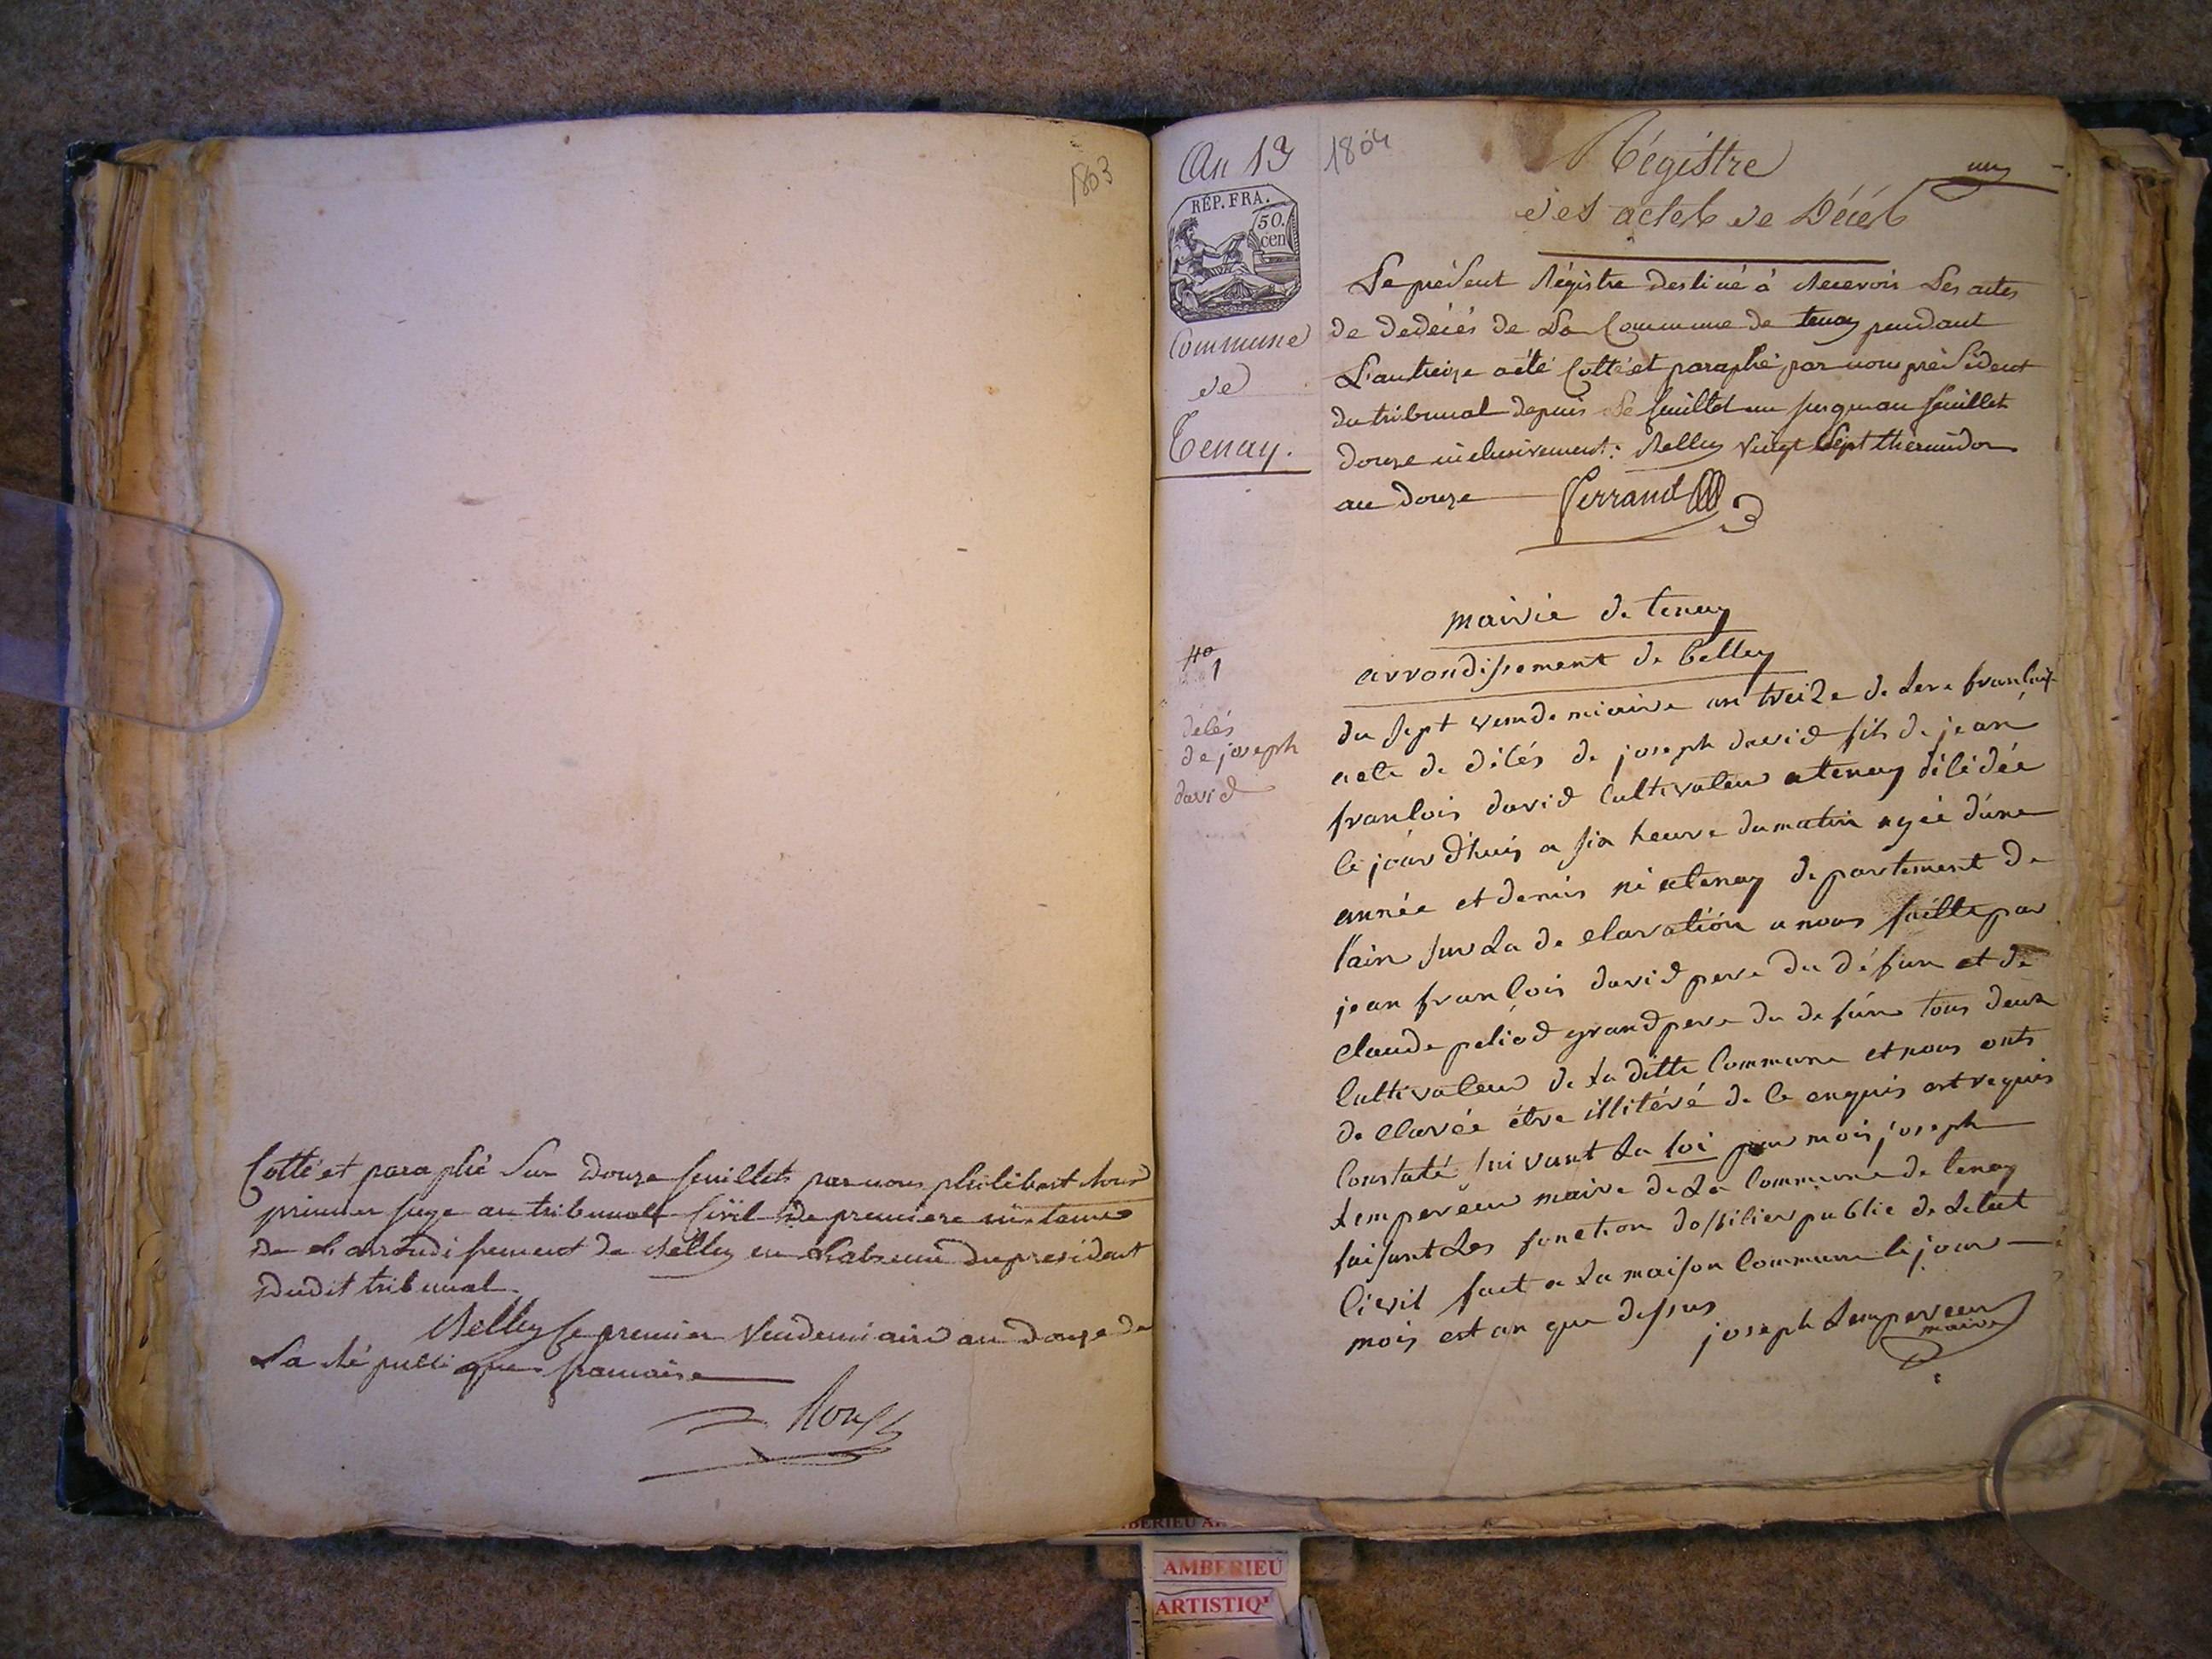 1803
Cotté et paraphé Sur Douze feuillets par nous philibert Roux
premier juge au tribunal Civil de premiere instance
de L'arrondissement de Belley en L'absence du president
dudit tribunal.
Belley le premier Vendemiaire an Douze de
La République francaise
Roux
An 13
1804
RÉP. FRA.
50.
cen
Commune
de
Tenay.
Régistre
un
des actes de Décés
Le présent Régistre destiné à Recevoir Les actes
de dedécés de La Commune de tenay pendant
L'an treize a été Cotté et paraphé, par nous président
du tribunal depuis Le feuillet un jusqu'au feuillet
douze inclusivement: Belley Vingt Sept thermidor
an douze Ferrand
mairie de tenay
arrondissement de belley
No
1
délés
de joseph
david
du sept vemdemiaire an treize de Lere franlais
acte de délés de joseph david fils de jean
franlois david Cultivateur a tenay délédée
le jourd'huis a six heure du matin agée d'une
année et demis né a tenay departement de
l'ain sur La declaration a nous faitte par
jean franlois david pere du défun et de
claude peliod grand pere du defun tous deux
Cultivateur de La ditte Commune et nous onts
declarée étre illitéré de ce enquis est requis
Constaté suivant La loi par mois joseph
Lempereur maire de La Commune de tenay
faisant Les fonction d'offilier public de Létat
Cievil fait a La maison Commune le jour
mois est an que dessus
joseph Lempereur
maire
AMBERIEU
AMBERIEU
ARTISTIQ